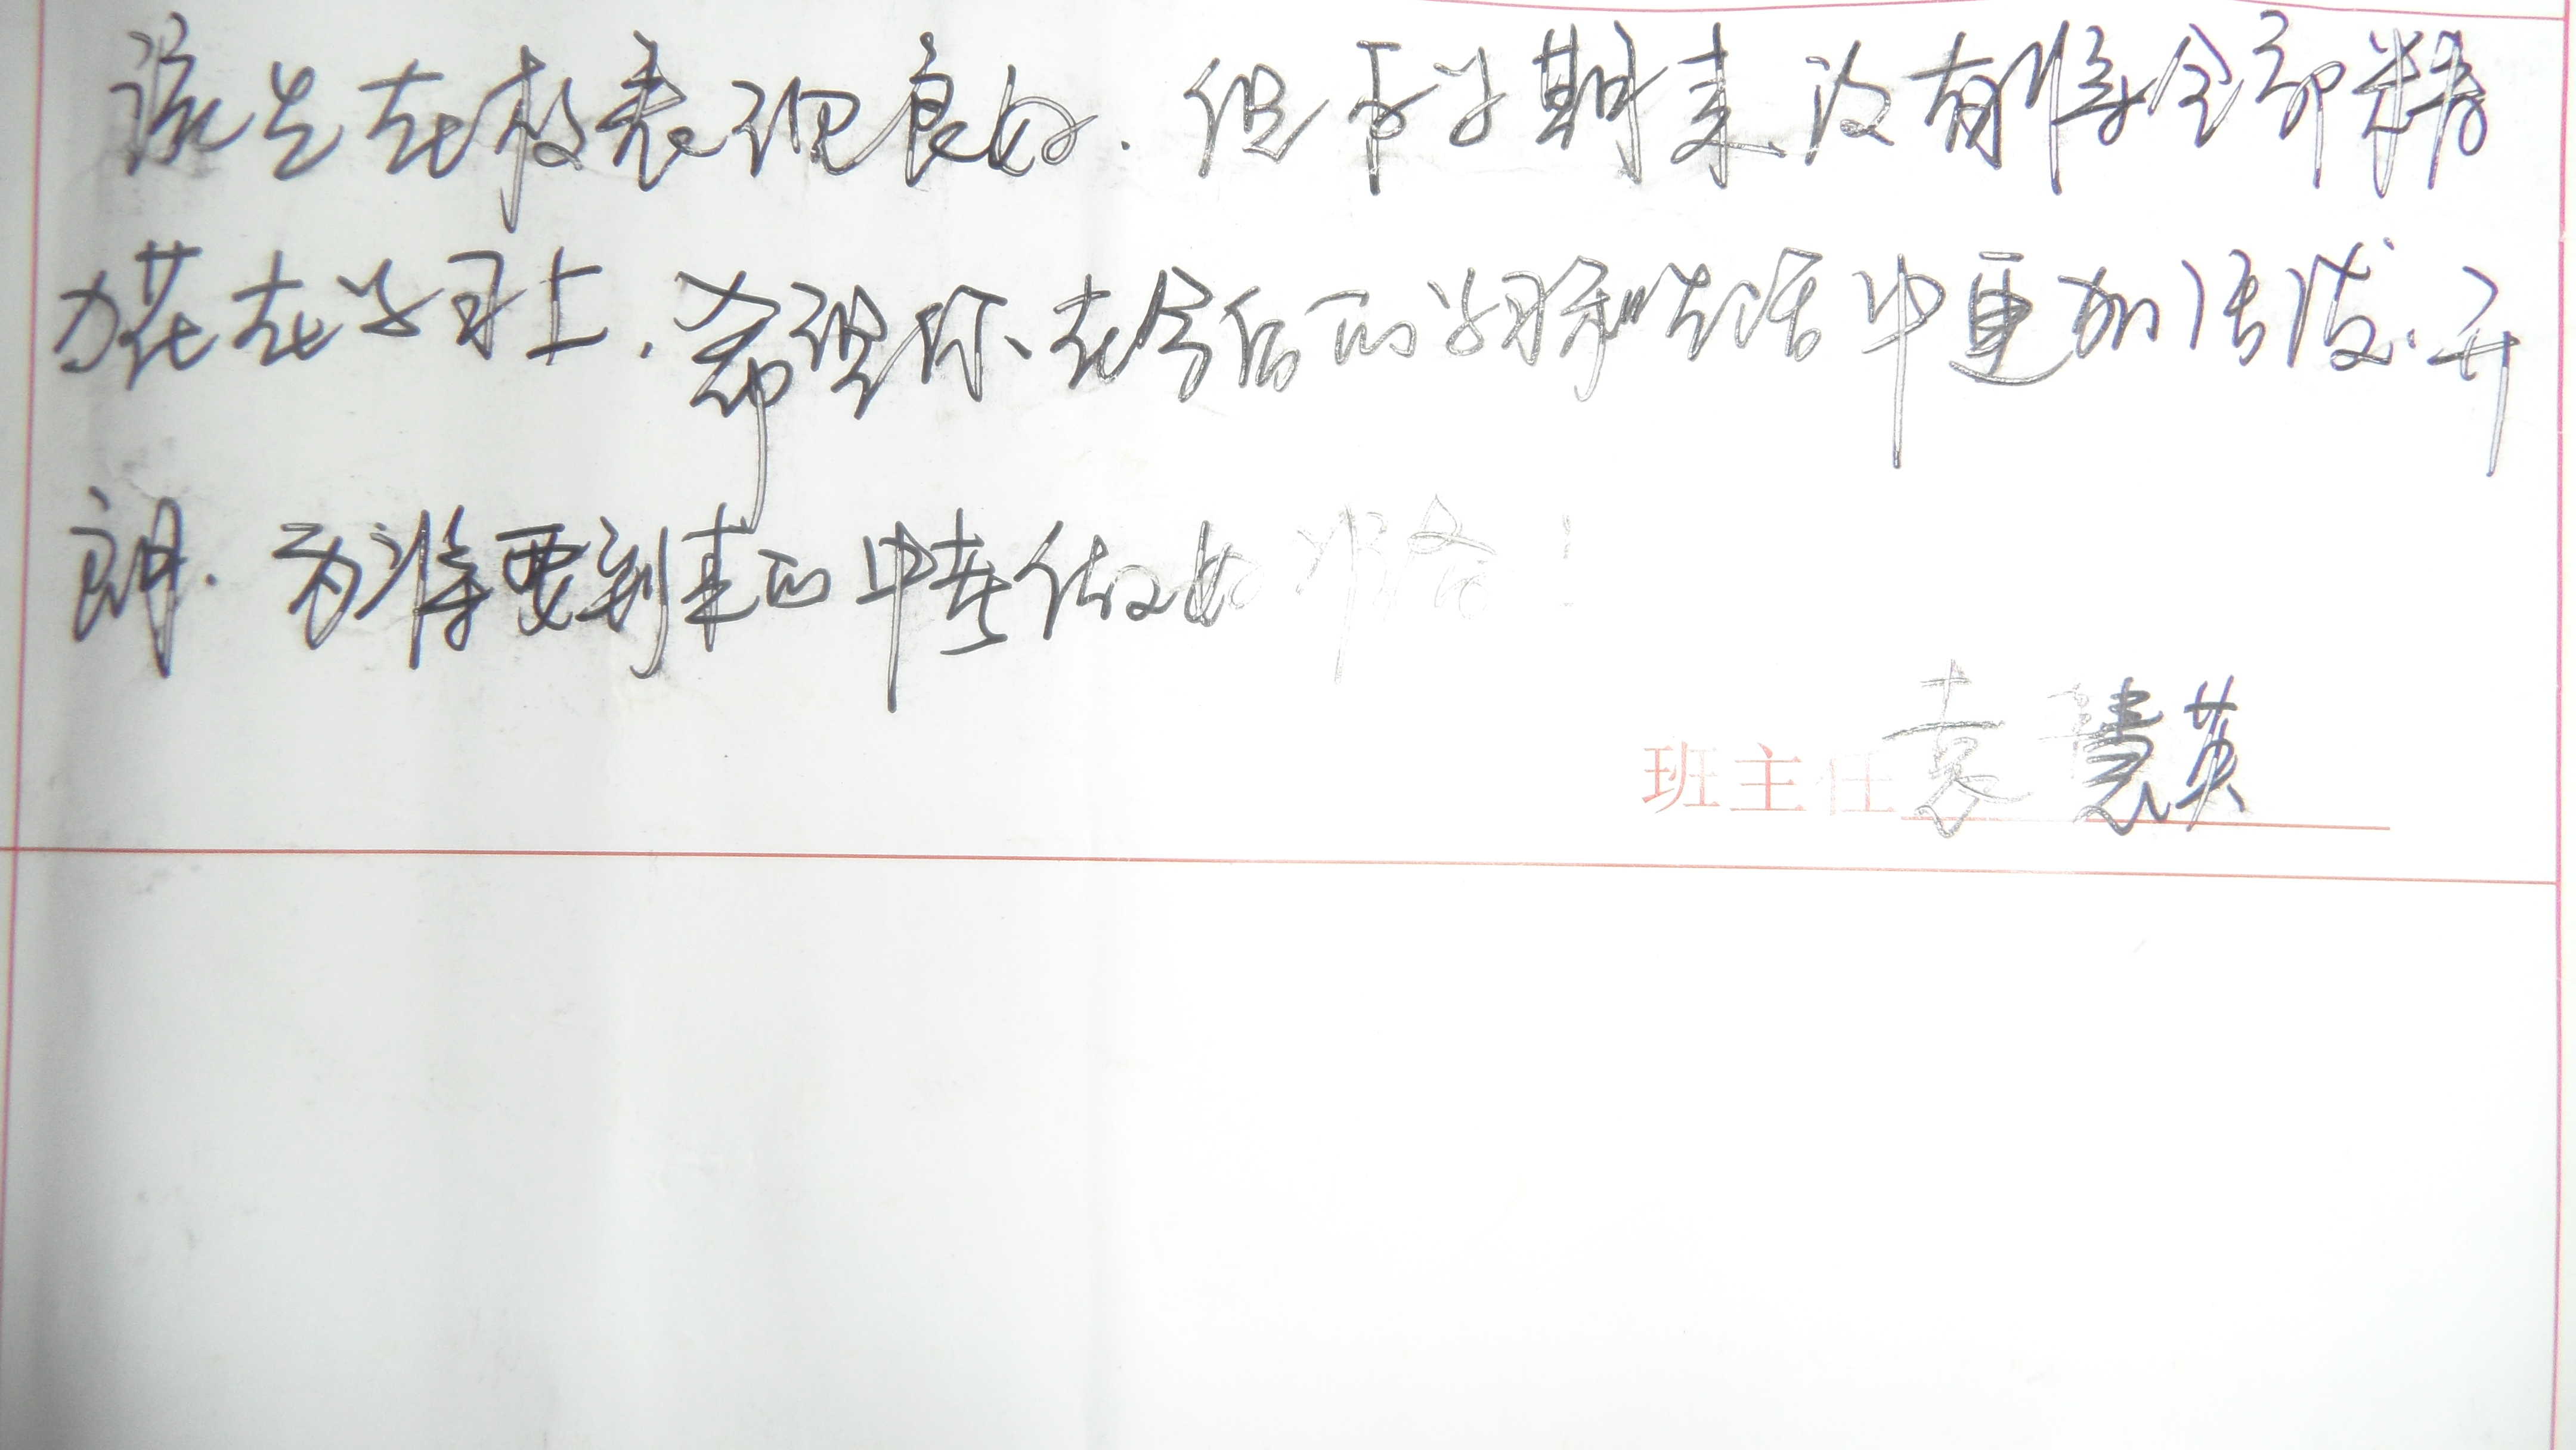 该生在校表现良好.但本学期来,没有将全部精
力花在学习上.希望你、在今后的学习和生活中更加活泼.开
朗.为将要到来的中考做好准备!
班主任 袁慧英